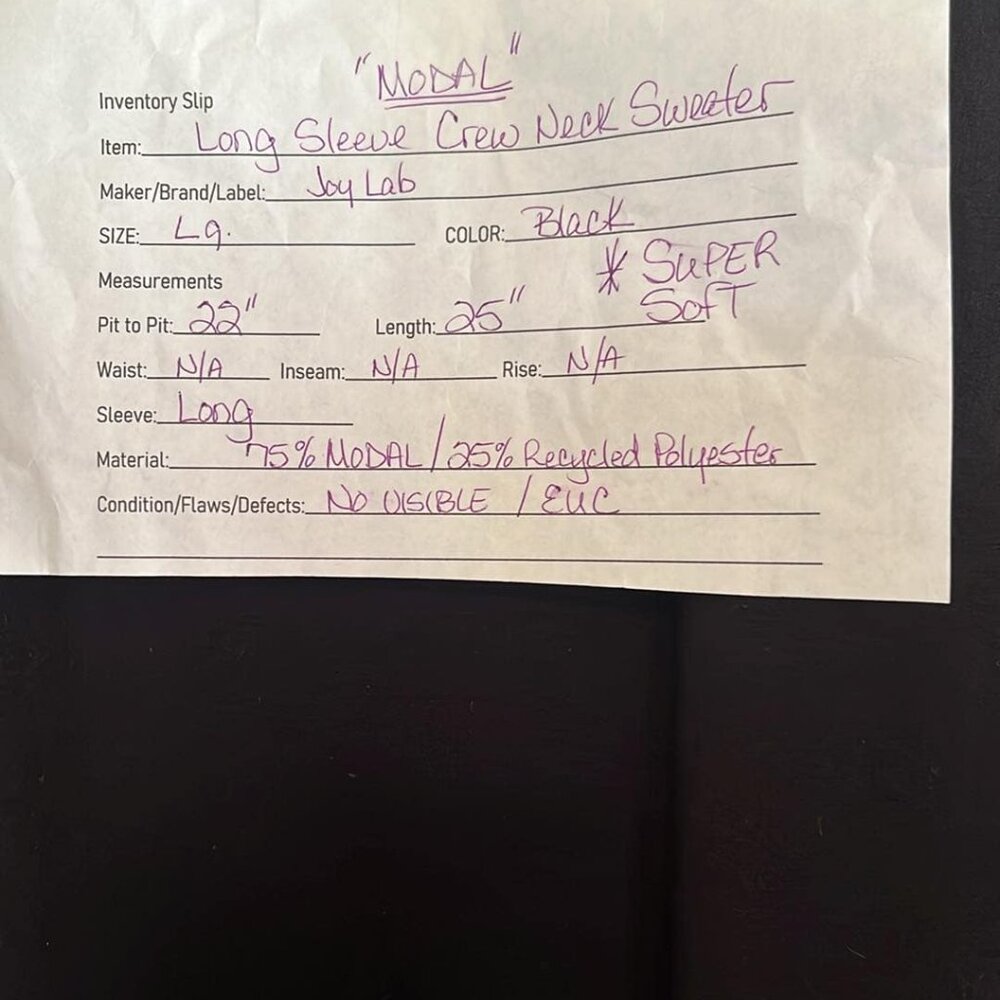 "MODAL"
Inventory Slip
Item: Long Sleeve Crew Neck Sweater
Maker/Brand/Label: Joy Lab
SIZE: Lg. COLOR: Black
* SUPER
Measurements
Soft
Pit to Pit: 22" Length: 25"
Waist: N/A Inseam: N/A Rise: N/A
Sleeve: Long
Material: 75% MODAL / 25% Recycled Polyester
Condition/Flaws/Defects: No VISIBLE / EUC